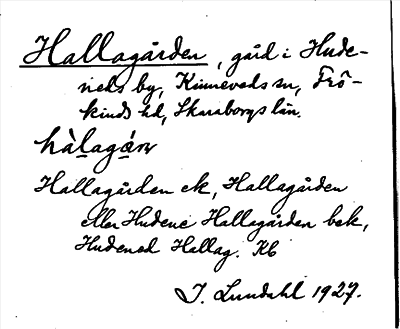 Hallagården, gård i Hude-
neds by, Kinneveds sn, Frö-
kinds hd, Skaraborgs län.
hàlagá
Hallagården ek, Hallagården
eller Hudene Hallagården bek,
Hudened Hallag. Kb
J. Lundahl 1927.